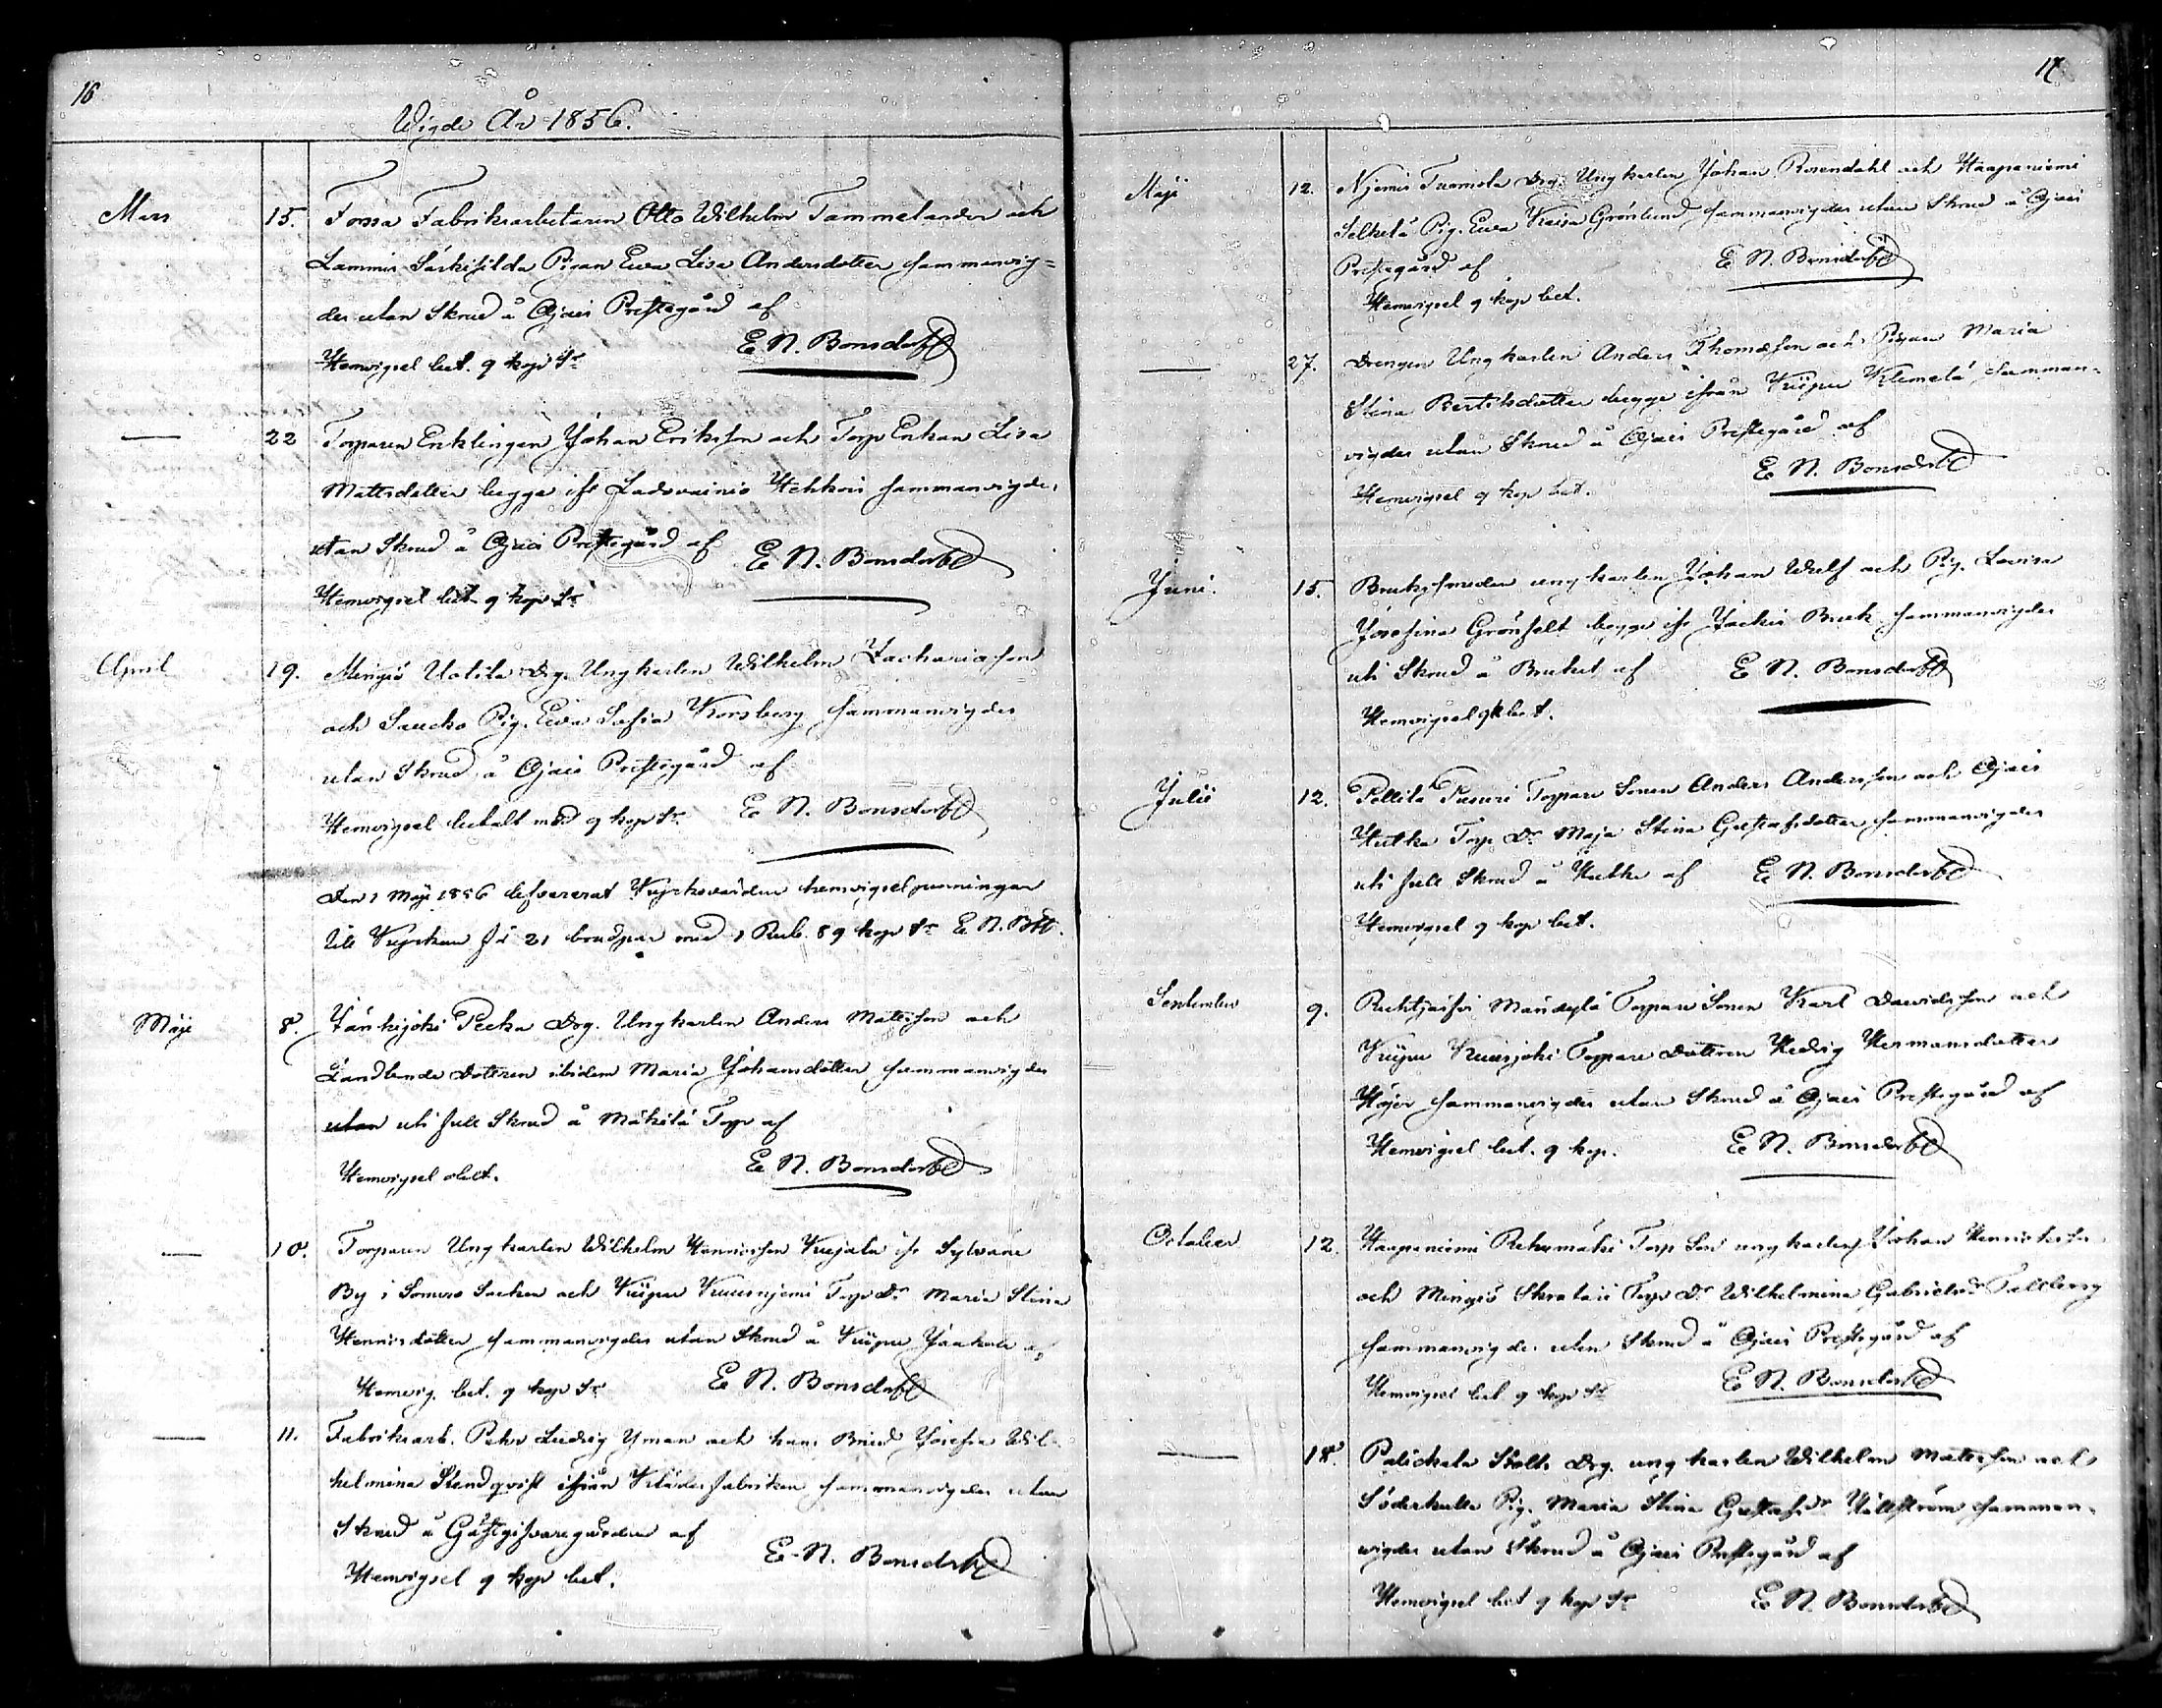 16
Wigde År 1856.
Mars 15. Forssa Fabriksarbetaren Otto Wilhelm Tammelander och
Lammis Särkisilda Pigan Ewa Lisa Andersdotter sammanvig=
des utan Skrud å Ojais Prestegård af
E N. Bonsdorff
Hemvigsel bet. 9 kop Sr
— 22 Torparen Enklingen Johan Eriksson och Torp Enkan Lisa
Mattsdotter begge ifr Ladovainio Hehkoi sammanvigdes
utan Skrud å Ojais Prestegård af E N. Bonsdorff
Hemvigsel bet 9 kop Sr
April 19. Mingiö Uotila Drg. Ungkarlen Wilhelm Zachariasson
och Saucko Pig. Ewa Sofia Korsberg sammanvigdes
utan Skrud å Ojais Prestegård af
Hemvigsel betalt med 9 kop Sr E N. Bonsdorff
Den 1 Maji 1856 lefvererat Kyrkovärden hemvigselpenningar
till Kyrkan för 21 brudpar med 1 Rub. 89 kop Sr E. N. Bff.
Maji 8. Jänhijoki Pecka Drg. Ungkarlen Anders Mattsson och
Landbonde Dotteren ibidem Maria Johansdotter sammanvigdes
utan uti full Skrud å Mäkilä Torp af
E N. Bonsdorff
Hemvigsel obet.
— 10. Torparen Ungkarlen Wilhelm Henricsson Kujala ifr Sylvane
By i Somero Socken och Kuipu Kuusnjemi Torp Dr Maria Stina
Henricsdotter sammanvigdes utan Skrud å Kuipu Jaakola af
Hemvig. bet. 9 kop Sr E N. Bonsdorff
— 11. Fabriksarb. Pehr Ludvig Yman och hans Brud Josefa Wil-
helmina Stendqvist ifrån Klädesfabriken sammanvigdes utan
Skrud å Gästgifvaregården af
E. N. Bonsdorff
Hemvigsel 9 kop bet.
17
Maji 12. Njemis Tuomola Drg. Ungkarlen Johan Rosendahl och Haapaniemi
Selkelä Pig. Ewa Kaisa Grönlund sammanvigdes utan Skrud å Ojais
Prestegård af E N. Bonsdorff
Hemvigsel 9 kop bet.
— 27. Drengen Ungkarlen Anders Thomasson och Pigan Maria
Stina Bertilsdotter begge ifrån Kuipu Klemelä samman-
vigdes utan Skrud å Ojais Prestegård af
E N. Bonsdorff
Hemvigsel 9 kop bet.
Juni. 15. Bruks smeden ungkarlen Johan Wulf och Pig. Lovisa
Josefina Grönfelt begge ifr Jockis Bruk sammanvigdes
uti Skrud å Bruket af E N. Bonsdorff
Hemvigsel 9k bet.
Julii 12. Pellilä Pusuri Torpare Sonen Anders Andersson och Ojais
Hutka Torp Dr Maja Stina Gustafsdotter sammanvigdes
uti full Skrud å Hutka af E N. Bonsdorff
Hemvigsel 9 kop bet.
September 9. Ruhtjaisfvi Mändylä Torpare Sonen Karl Davidsson och
Kuipu Kuusjoki Torpare Dotteren Hedvig Hermansdotter
Höjer sammanvigdes utan Skrud å Ojais Prestegård af
Hemvigsel bet. 9 kop. E N. Bonsdorff
October 12. Haapaniemi Rehumäki Torp Son ungkarlen Johan Henriksson
och Mingiö Skratari Torp Dr Wilhelmina Gabrielsdr Fallberg
sammanvigdes utan Skrud å Ojais Prestegård af
Hemvigsel bet 9 kop Sr E N. Bonsdorff
— 18. Palickala Stolts Drg. ungkarlen Wilhelm Mattsson och
Söderkulla Pig. Maria Stina Gustafsdr Hällström samman-
vigdes utan Skrud å Ojais Prestegård af
Hemvigsel bet 9 kop Sr E N. Bonsdorff